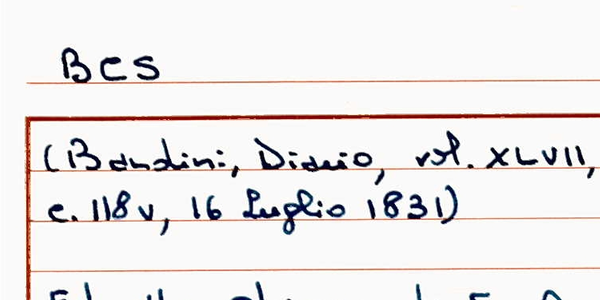 BCS
(Bandini, Diario, vol. XLVII,
c. 118v, 16 Luglio 1831)